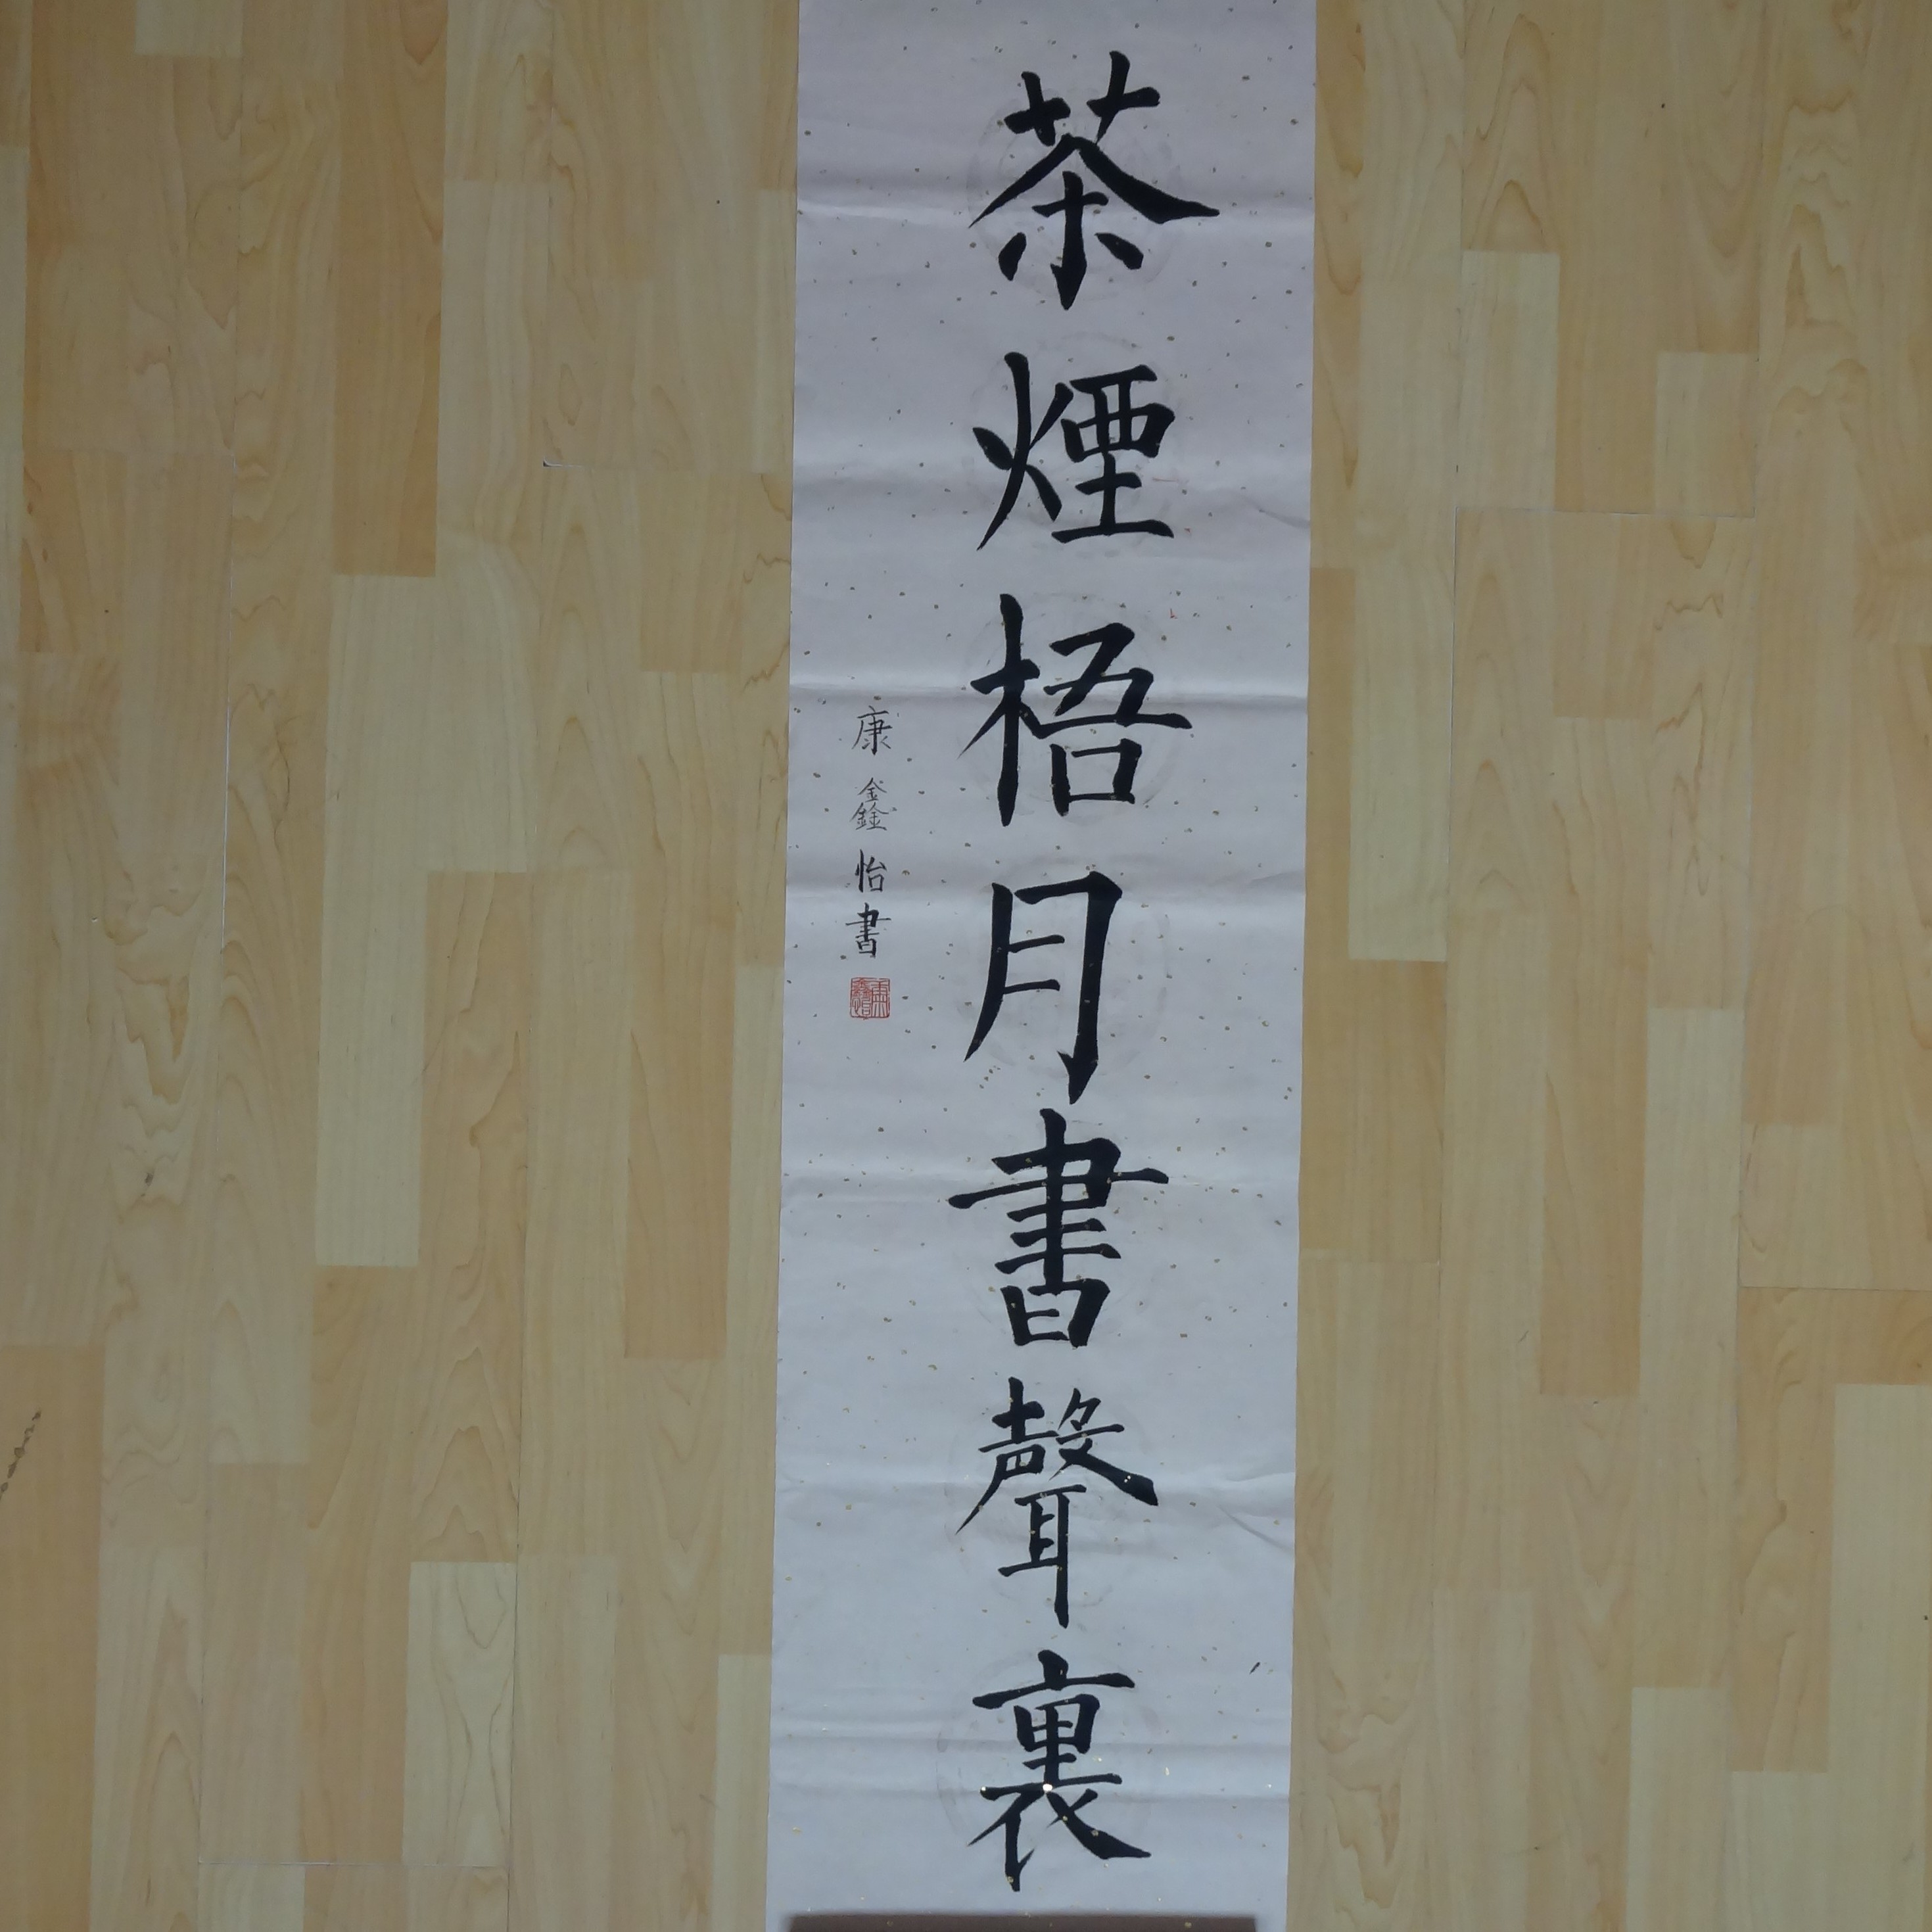 茶煙梧月書聲裏
康鑫怡書